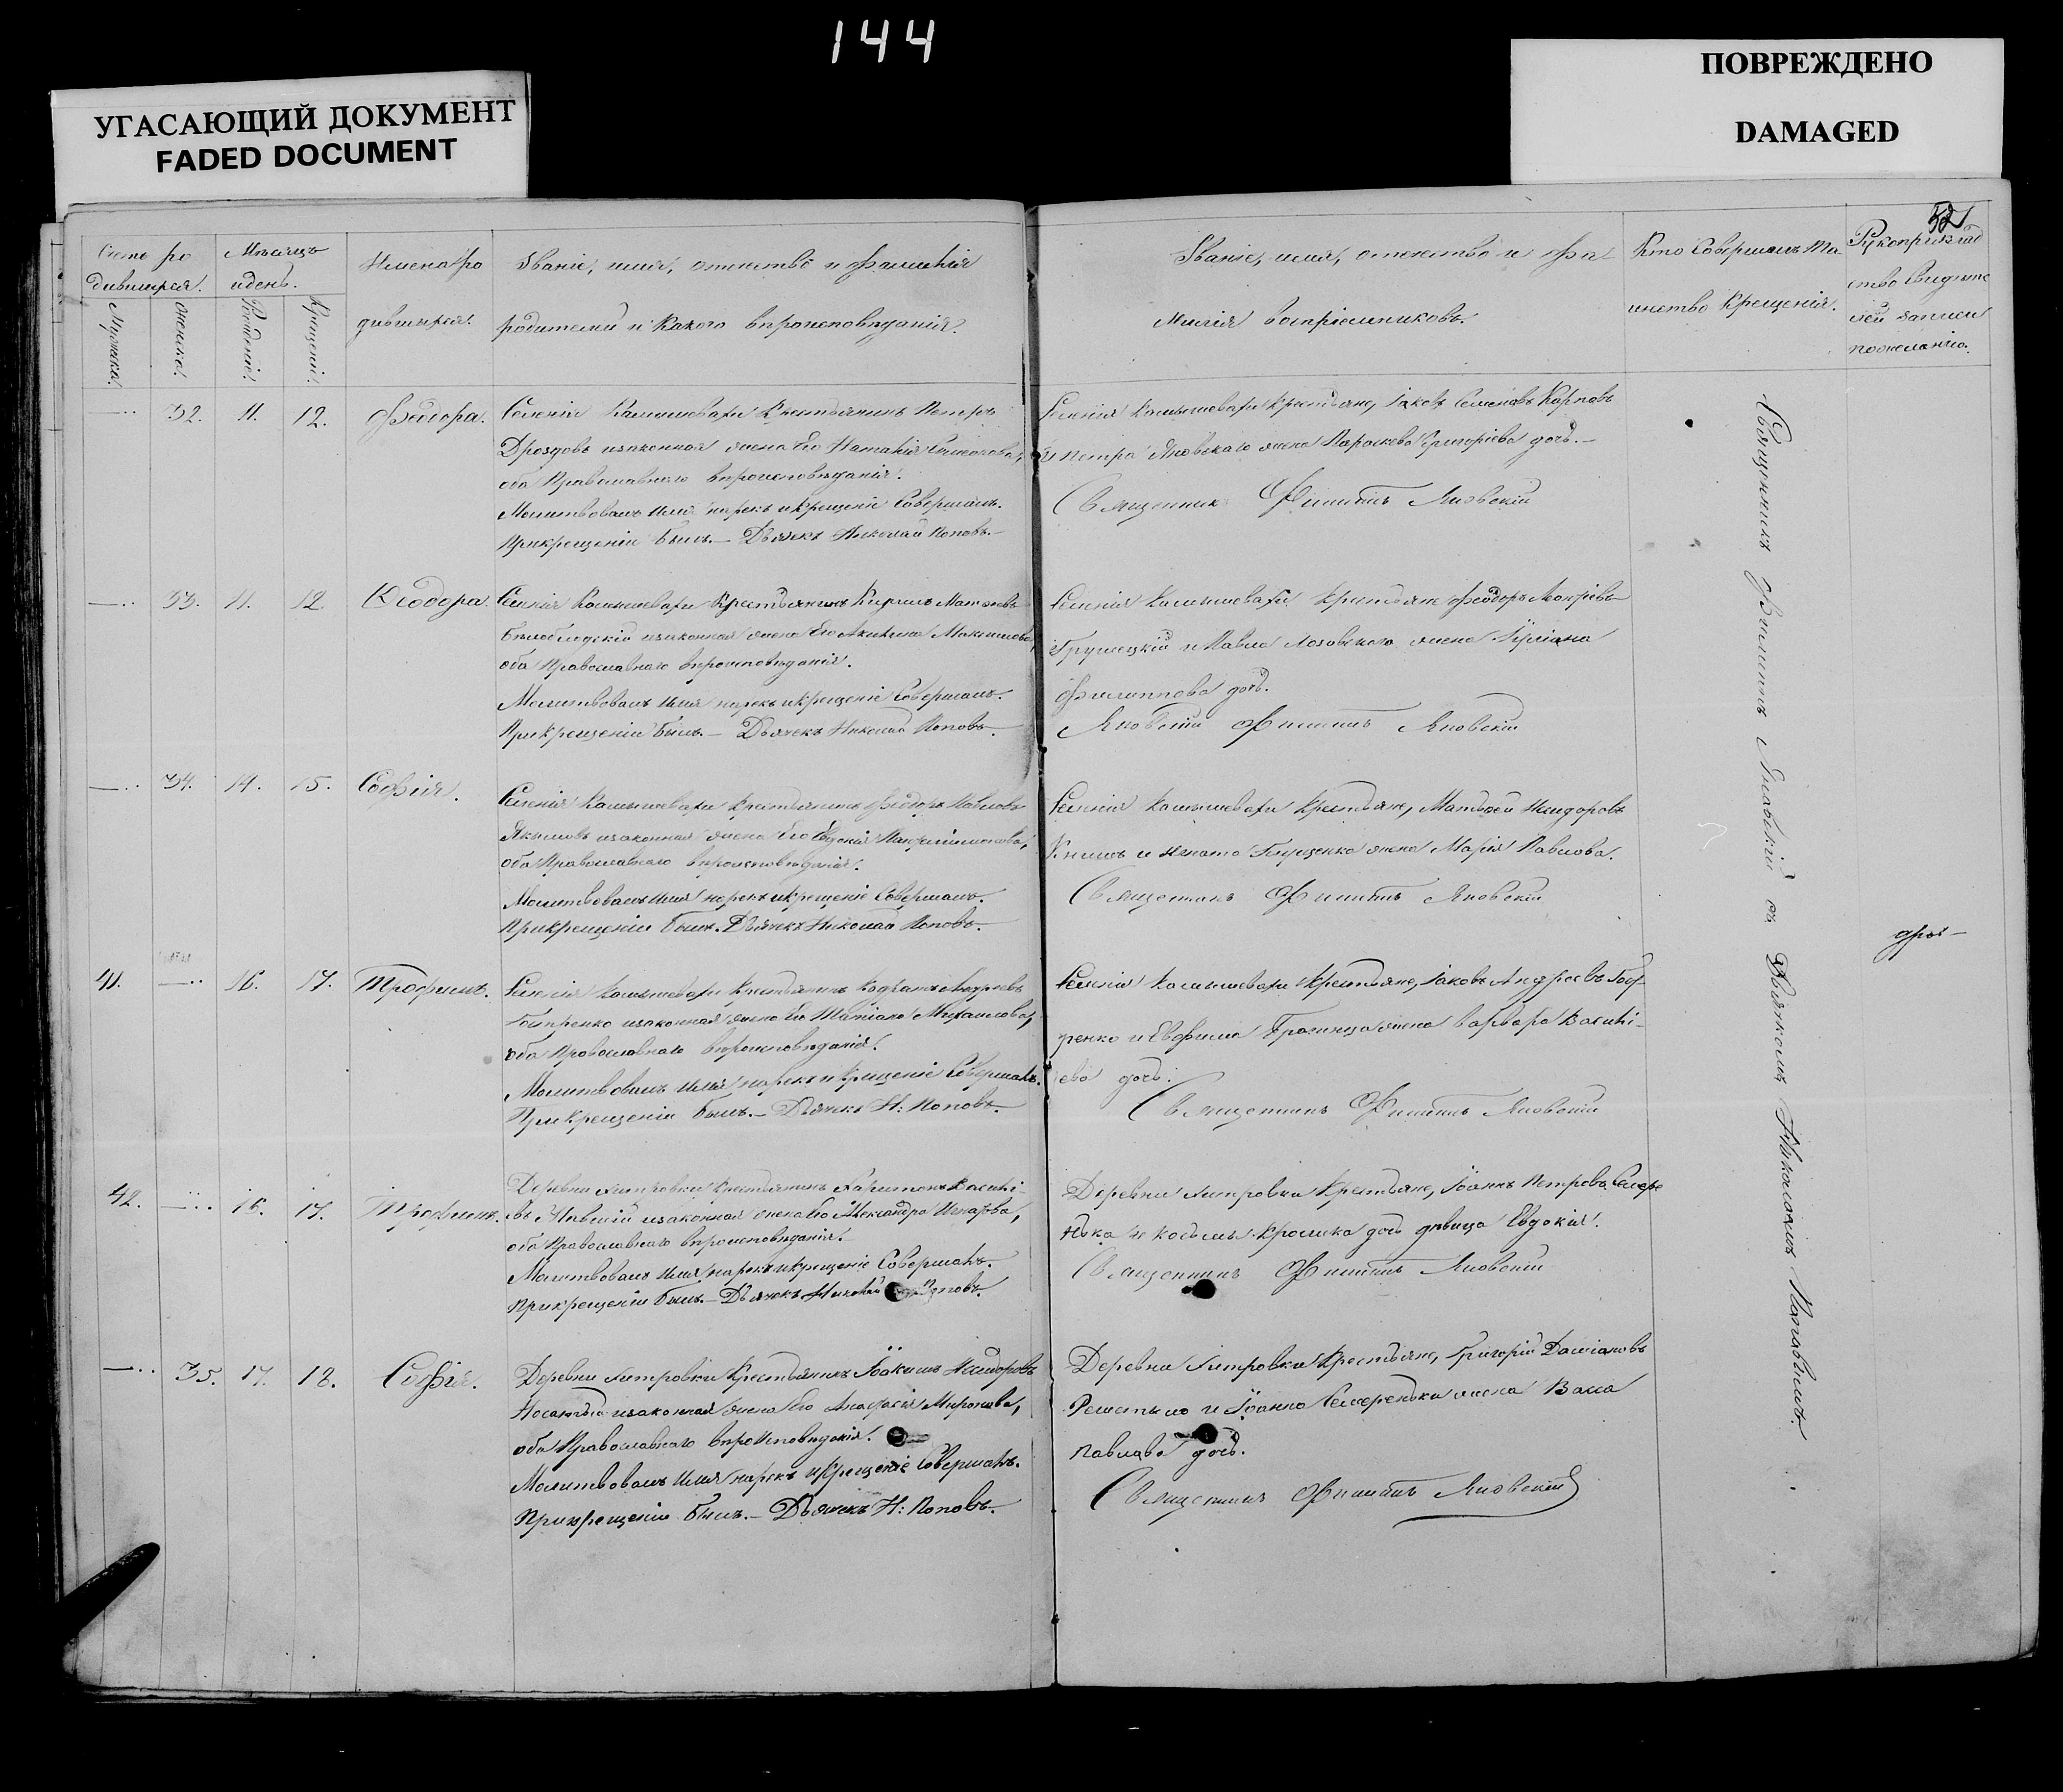 144
УГАСАЮЩИЙ ДОКУМЕНТ
FADED DOCUMENT
ПОВРЕЖДЕНО
DAMAGED
52
Счетъ ро
дившихся.
Мужеска.
Женска.
Мѣсяцъ
и день.
Рожденія.
Крещенія.
Имена ро
дившихся.
Званіе, имя, отчество и фамилія
родителей и какого вѣроисповѣданія.
Званіе, имя, отчество и фа
милія воспріемниковъ.
Кто совершалъ та-
инство крещенія.
Рукоприклад
ство свидѣте
лей записи
по желанію.
32. 11. 12. Ѳеодора.
Селенія Камышевахи Крестьянинъ Петръ
Дроздовъ и законная жена Его Наталія
оба Православнаго вѣроисповѣданія.
Молитвовалъ имя нарекъ и крещеніе Совершалъ.
При крещеніи былъ.— Дьячекъ Николай Поповъ.—
Селенія Камышевахи Крестьяне, Іаковъ Семеновъ Карповъ
и Петра Яновскаго жена Параскева Григоріева дочь.—
Священникъ Филиппъ Яновскій
33. 11. 12. Ѳеодора.
Селенія Камышевахи Крестьянинъ Кирилъ
и законная жена Его Акилина Максимова,
оба Православнаго вѣроисповѣданія.
Молитвовалъ имя нарекъ и крещеніе Совершалъ.
При крещеніи былъ.— Дьячекъ Николай Поповъ.
Селенія Камышевахи Крестьяне Ѳеодоръ
Грушецкій и Павла Лозовскаго жена Іуліана
Филиппова дочь.
Филиппъ Яновскій
34. 14. 15. Софія.
Селенія Камышевахи Крестьянинъ Ѳеодоръ Павловъ
и законная жена Его Евдокія
оба Православнаго вѣроисповѣданія.
Молитвовалъ имя нарекъ и крещеніе Совершалъ.
При крещеніи былъ. Дьячекъ Николай Поповъ.—
Селенія Камышевахи Крестьяне, Матвѣй Исидоровъ
Книшъ и Игната жена Марія Павлова.
Священникъ Филиппъ Яновскій
41. 16. 17. Трофимъ.
Селенія Камышевахи Крестьянинъ Кодратъ Андреевъ
и законная жена Его Татіана Михаилова,
оба Православнаго вѣроисповѣданія.
Молитвовалъ имя нарекъ и крещеніе Совершалъ.
При крещеніи былъ.— Дьячекъ Н: Поповъ.—
Селенія Камышевахи Крестьяне, Іаковъ Андреевъ
ренко и Евфима жена Варвара Василі-
ева дочь.
Священникъ Филиппъ Яновскій
42. 16. 17. Трофимъ.
Деревни Крестьянинъ Харитонъ Василі-
евъ и законная жена Его Александра
оба Православнаго вѣроисповѣданія.
Молитвовалъ имя нарекъ и крещеніе Совершалъ.
При крещеніи былъ.— Дьячекъ Николай Поповъ.
Деревни Крестьяне, Іоаннъ Петровъ Семере
нька и Косьмы дочь дѣвица Евдокія.
Священникъ Филиппъ Яновскій
35. 17. 18. Софія.
Деревни Крестьянинъ Іоакимъ Исидоровъ
и законная жена Его Анастасія Миронова,
оба Православнаго вѣроисповѣданія.
Молитвовалъ имя нарекъ и крещеніе Совершалъ.
При крещеніи былъ.— Дьячекъ Н: Поповъ.—
Деревни Крестьяне, Григорій Даміановъ
Решетыло и Іоанна Семереньки жена Васса
Павлова дочь.
Священникъ Филиппъ Яновскій
Священникъ Филиппъ Яновскій съ Дьячкомъ Николаемъ Поповымъ.